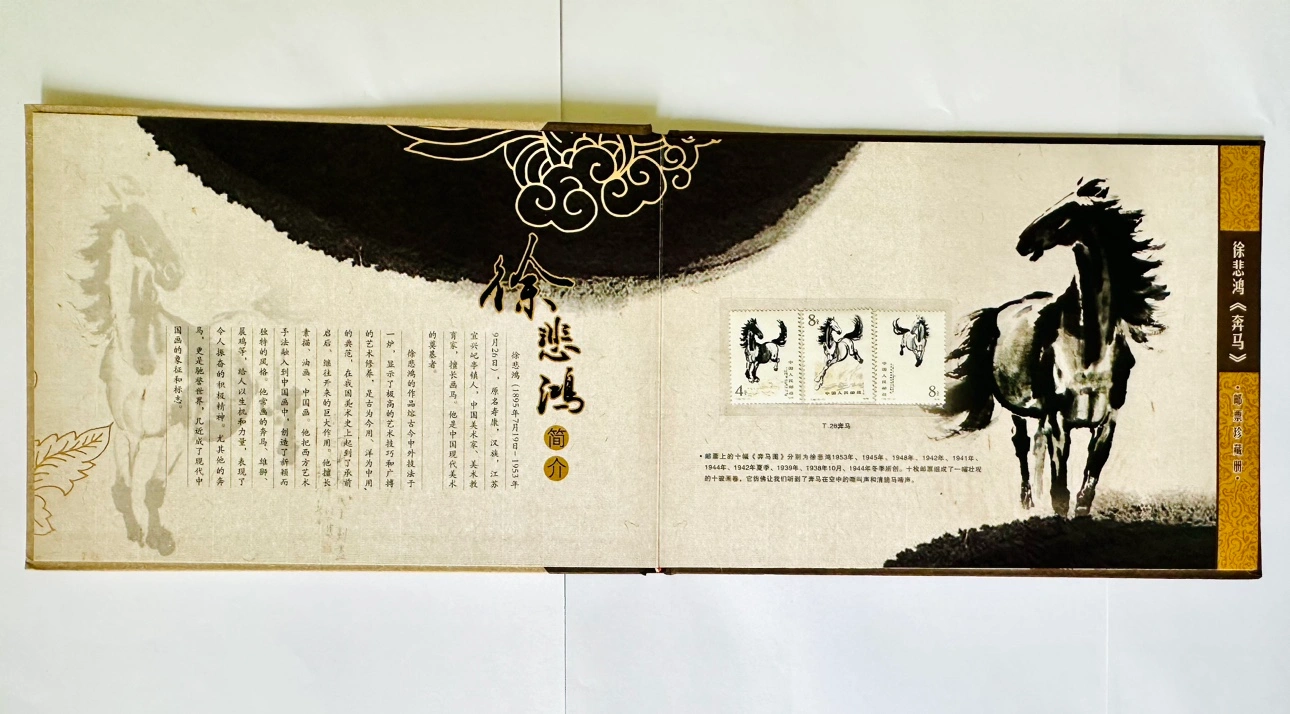 徐悲鸿
简介
徐悲鸿（1895年7月19日—1953年
9月26日），原名寿康，汉族，江苏
宜兴屺亭镇人，中国美术家、美术教
育家，擅长画马。他是中国现代美术
的奠基者。
徐悲鸿的作品熔古今中外技法于
一炉，显示了极高的艺术技巧和广博
的艺术修养，是古为今用、洋为中用
的典范，在我国美术史上起到了承前
启后、继往开来的巨大作用。他擅长
素描、油画、中国画。他把西方艺术
手法融入到中国画中，创造了新颖而
独特的风格。他常画的奔马、雄狮、
晨鸡等，给人以生机和力量，表现了
令人振奋的积极精神。尤其他的奔
马，更是驰誉世界，几近成了现代中
国画的象征和标志。
4分
中国人民邮政
8分
中国人民邮政
8分
T.28奔马
•邮票上的十幅《奔马图》分别为徐悲鸿1953年、1945年、1948年、1942年、1941年、
1944年、1942年夏季、1939年、1938年10月、1944年冬季所创。十枚邮票组成了一幅壮观
的十骏画卷，它仿佛让我们听到了奔马在空中的嘶叫声和清脆马蹄声。
徐悲鸿《奔马》
·邮票珍藏册·